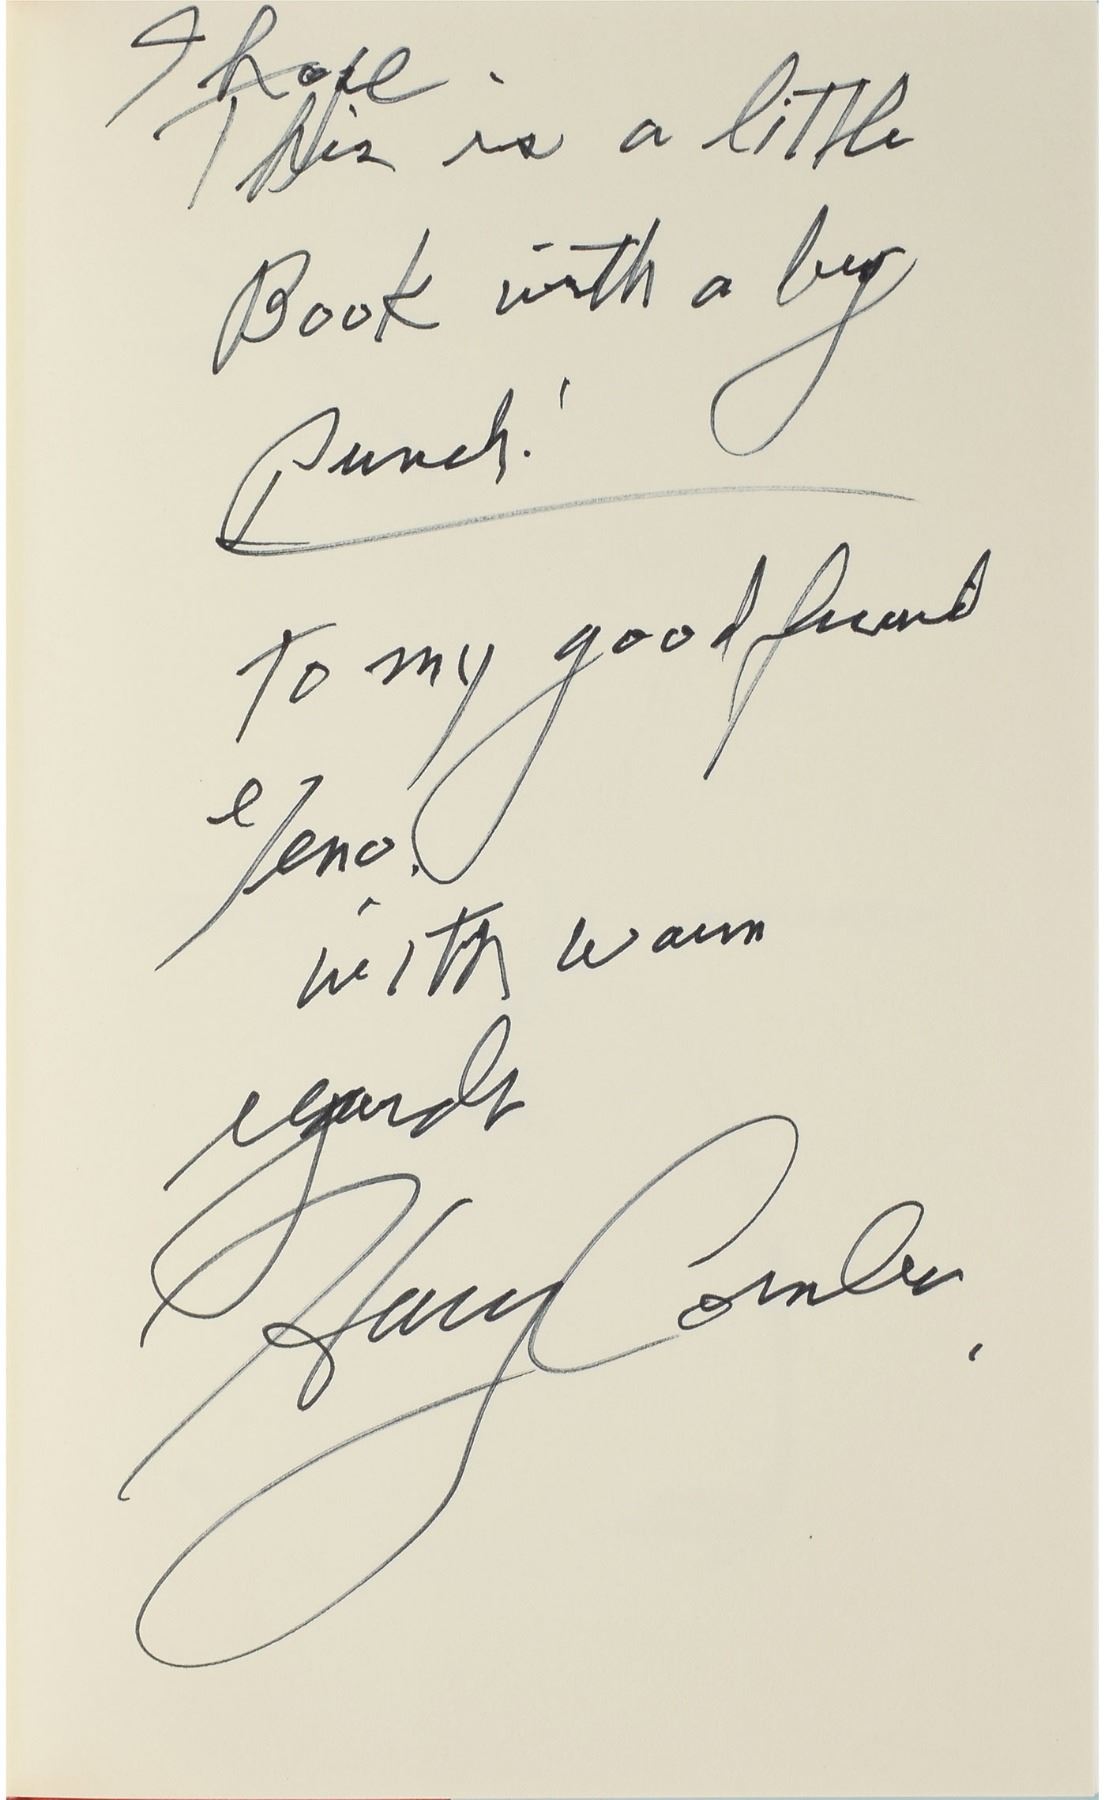 I hope
This is a little
Book with a big
Punch!
To my good friend
Zeno.
with warm
regards
Harry